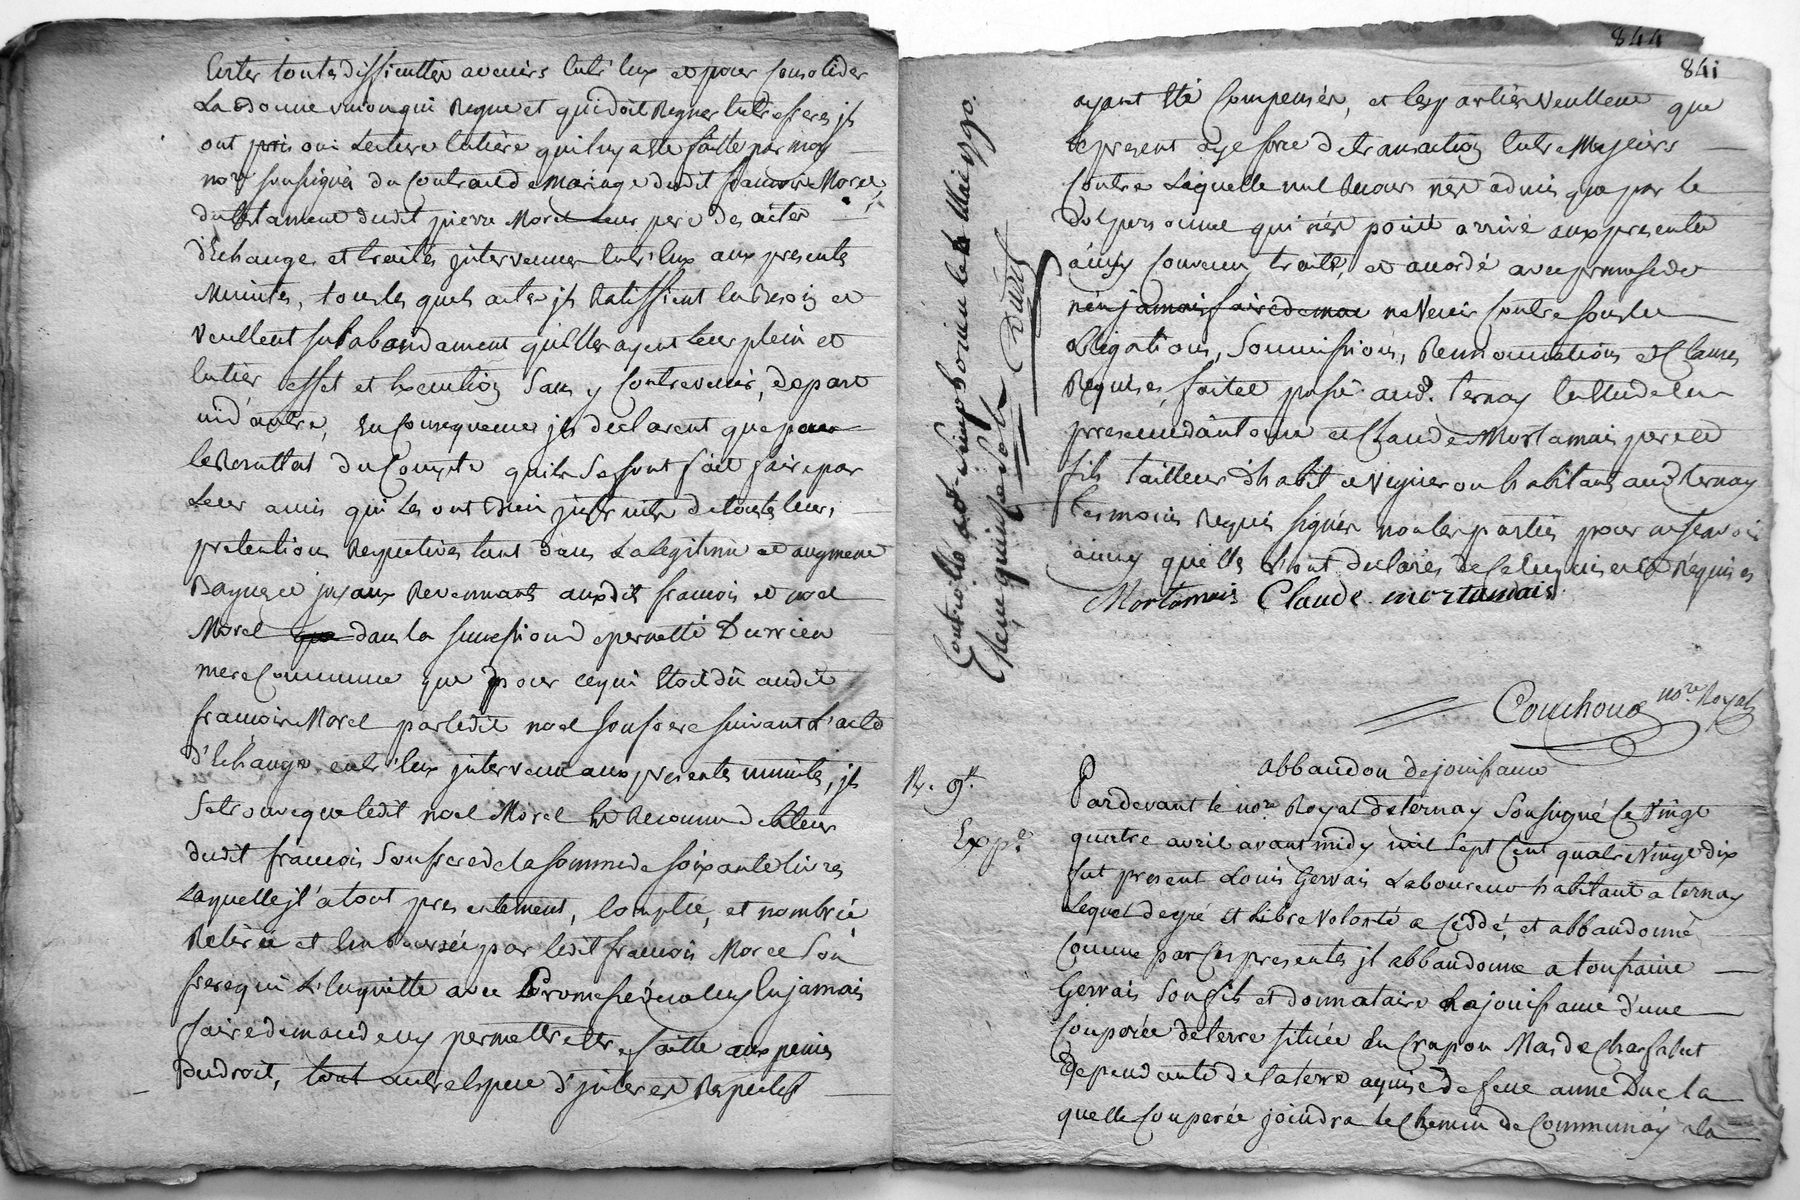 Eviter toutes difficultés avenirs entr'eux et pour consolider
La bonne union qui Regne et qui doit Regner entre freres jls
ont pris oui Lecture entière qui leur a été faitte par moy
nore soussigné du contract de mariage dudit francois Morel
du testament dudit pierre Morel Leur pere des actes
d'Echange et traités jntervenus entr'eux aux presentes
Minuttes, tous les quels actes jls Ratiffient en besoin et
veullent surabondament qu'elles ayent leur plein et
entier effet et Execution sans y contrevenir, de part
ni d'autre, En consequence jls declarent que pour
le Resultat du Compte qu'ils se sont fait faire par
Leur amis qui Les ont bien jnstruits de toutes leurs
pretentions Respectives tant dans La legitime et augment
Bagues et joyaux Revennants auxdit francois et noel
Morel que dans la succession de pernette Durrieu
mere Commune que pour ce qui Etoit dû audit
francois Morel par ledit noel son frere suivant L'acte
d'Echange entr'eux jntervenu aux presentes minuttes, jls
se trouve que ledit noel Morel Est Reconnu debiteur
dudit francois son frere de la somme de soixante livres
Laquelle jl a tout presentement, Comptée, et nombrée
Retirée et Emboursée par ledit francois Morel son
frere qui L'en quitte avec Promesse de ne leur En jamais
faire demande ny permettre Etre faitte aux peines
du droit, tout autre espece d'jnteret Respectif
844
841
ayant été Compensés, et les parties veullent que
le present aye force de transaction Entre Majeurs
Contre Laquelle nul Recours n'est admis que par le
dol personnel qui n'est point arrivé aux presentes
ainsy Convenu, traité, et accordé avec promesse de
n'en jamais faire demande ne Venir Contre sous les
obligations, Soumissions, Renonciations et Clauses
Requises, fait et passé aud. ternay En Etude En
presence d'antoine et Claude Mortamais pere et
fils tailleur d'habit et Vigneron habitants aud. ternay
temoins Requis signés non les parties pour ne sçavoir
ainsy quelles L'ont declarés de ce Enquises et Requises
Mortamais Claude mortamais
Couchoud nore Royal
Controllé a St Simphorien le 6 Mai 1790.
Reçu quinze sols
abbandon de jouissance
R. 9s.
Expé
Pardevant le nore Royal de ternay Soussigné Ce Vingt
quatre avril avant midy mil sept Cent quatre Vingt dix
fut present Louis Gervais Laboureur habitant a ternay
Lequel de gré et Libre Volonté a Ceddé, et abbandonné
Comme par Ces presentes jl abbandonne a toussaint
Gervais son fils et donnataire La jouissance d'une
Couperée de terre située En Crapon Mas de Charsalut
dependante de la terre aquise de feue anne Duc la
quelle Couperée joindra le Chemin de Communay a la